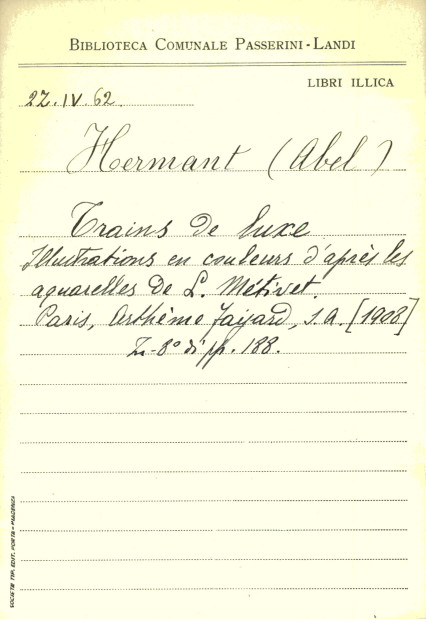 BIBLIOTECA COMUNALE PASSERINI-LANDI
LIBRI ILLICA
22.IV.62
Hermant (Abel)
Trains de luxe
Illustrations en couleurs d'après les
aquarelles de L. Métivet.
Paris, Arthème Fayard, s.a. [1908]
in-8° di pp. 188.
SOCIETÀ TIP. EDIT. PORTA - PIACENZA